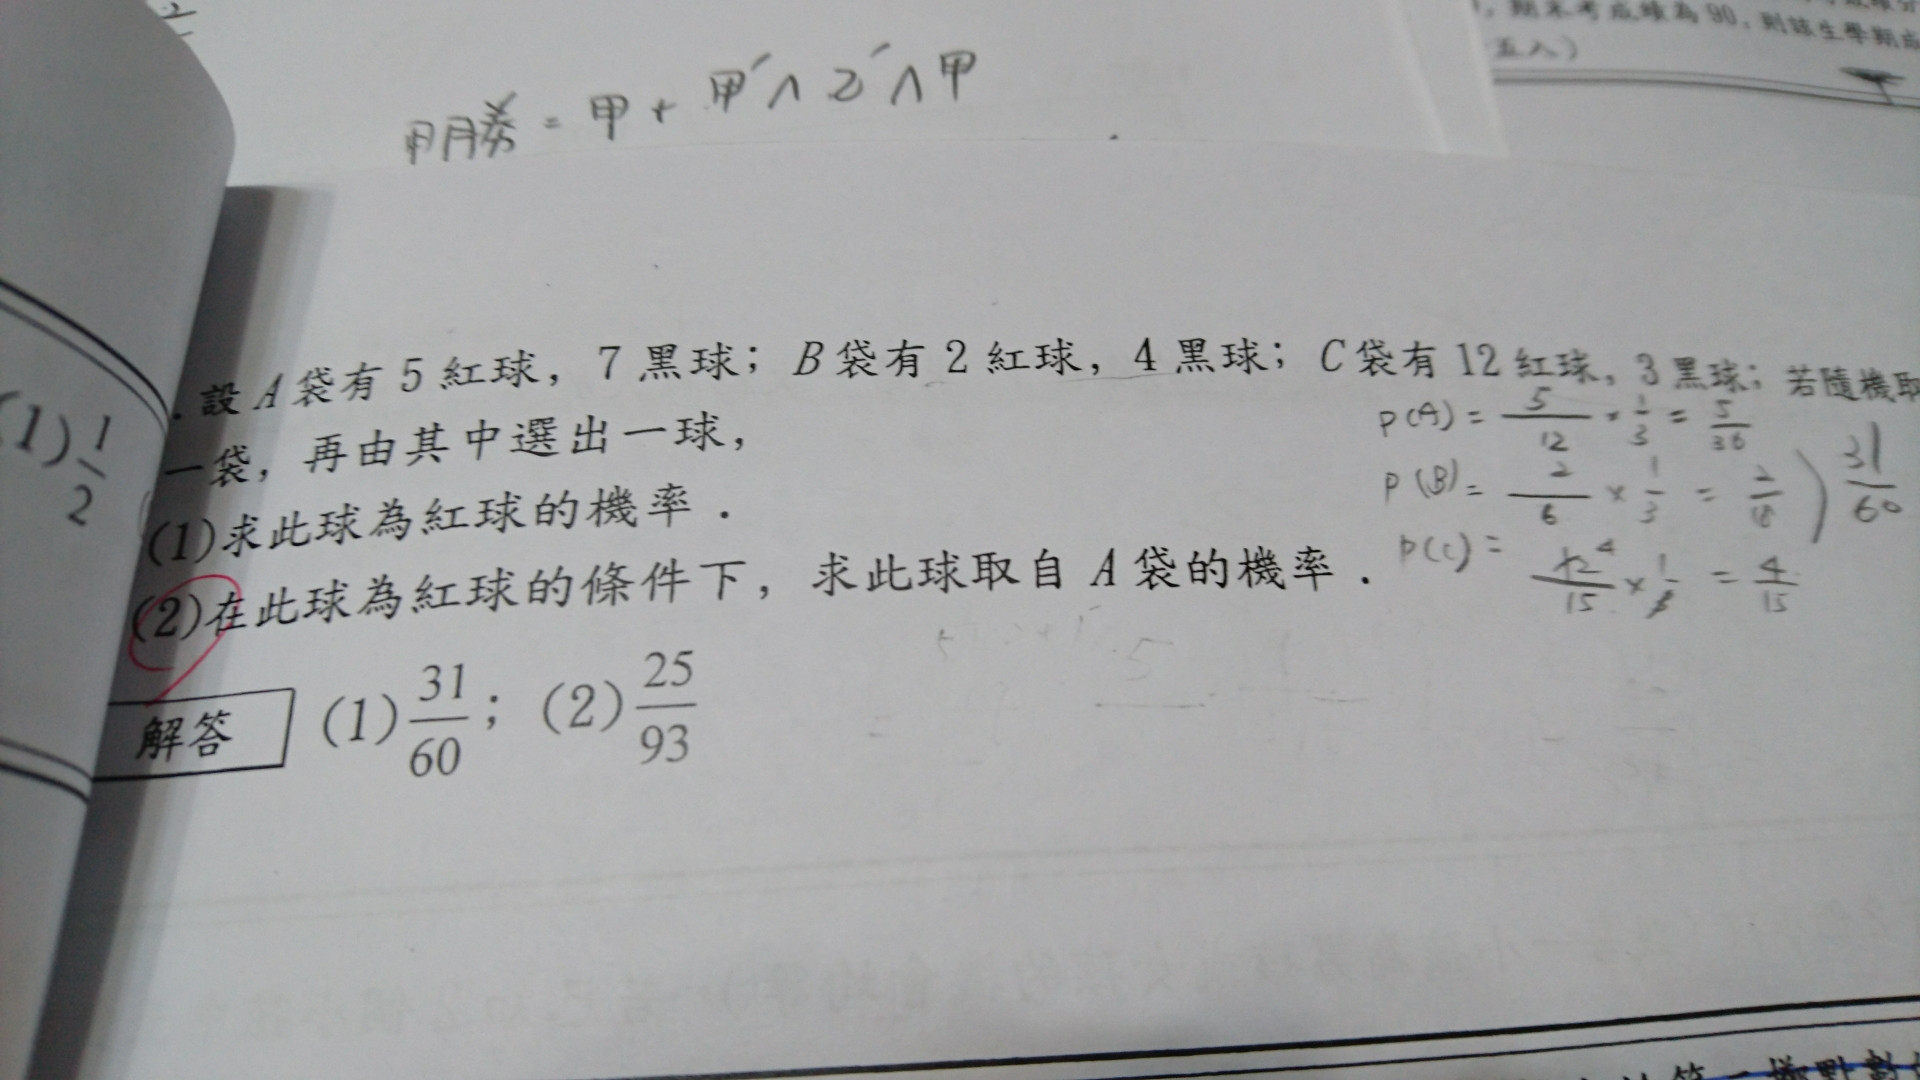 期末考成績為90，則該生學期成
五入）
甲勝 = 甲 + 甲′∧乙′∧甲
(1) 1/2
設A袋有5紅球，7黑球；B袋有2紅球，4黑球；C袋有12紅球，3黑球；若隨機取
一袋，再由其中選出一球，
(1)求此球為紅球的機率．
(2)在此球為紅球的條件下，求此球取自A袋的機率．
P(A) = 5/12 × 1/3 = 5/36
P(B) = 2/6 × 1/3 = 2/18
P(C) = 12 4/15 × 1/3 = 4/15
31/60
解答 (1)31/60；(2)25/93